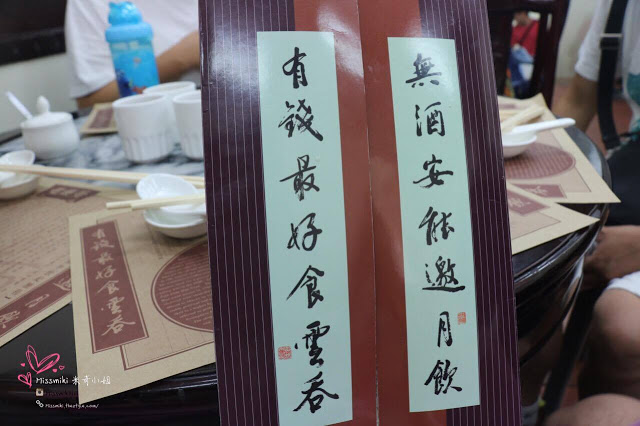 無酒安能邀月飲
有錢最好食雲吞
有錢最好食雲吞
Missmiki 米奇小姐
Missmiki.thestyle.com/